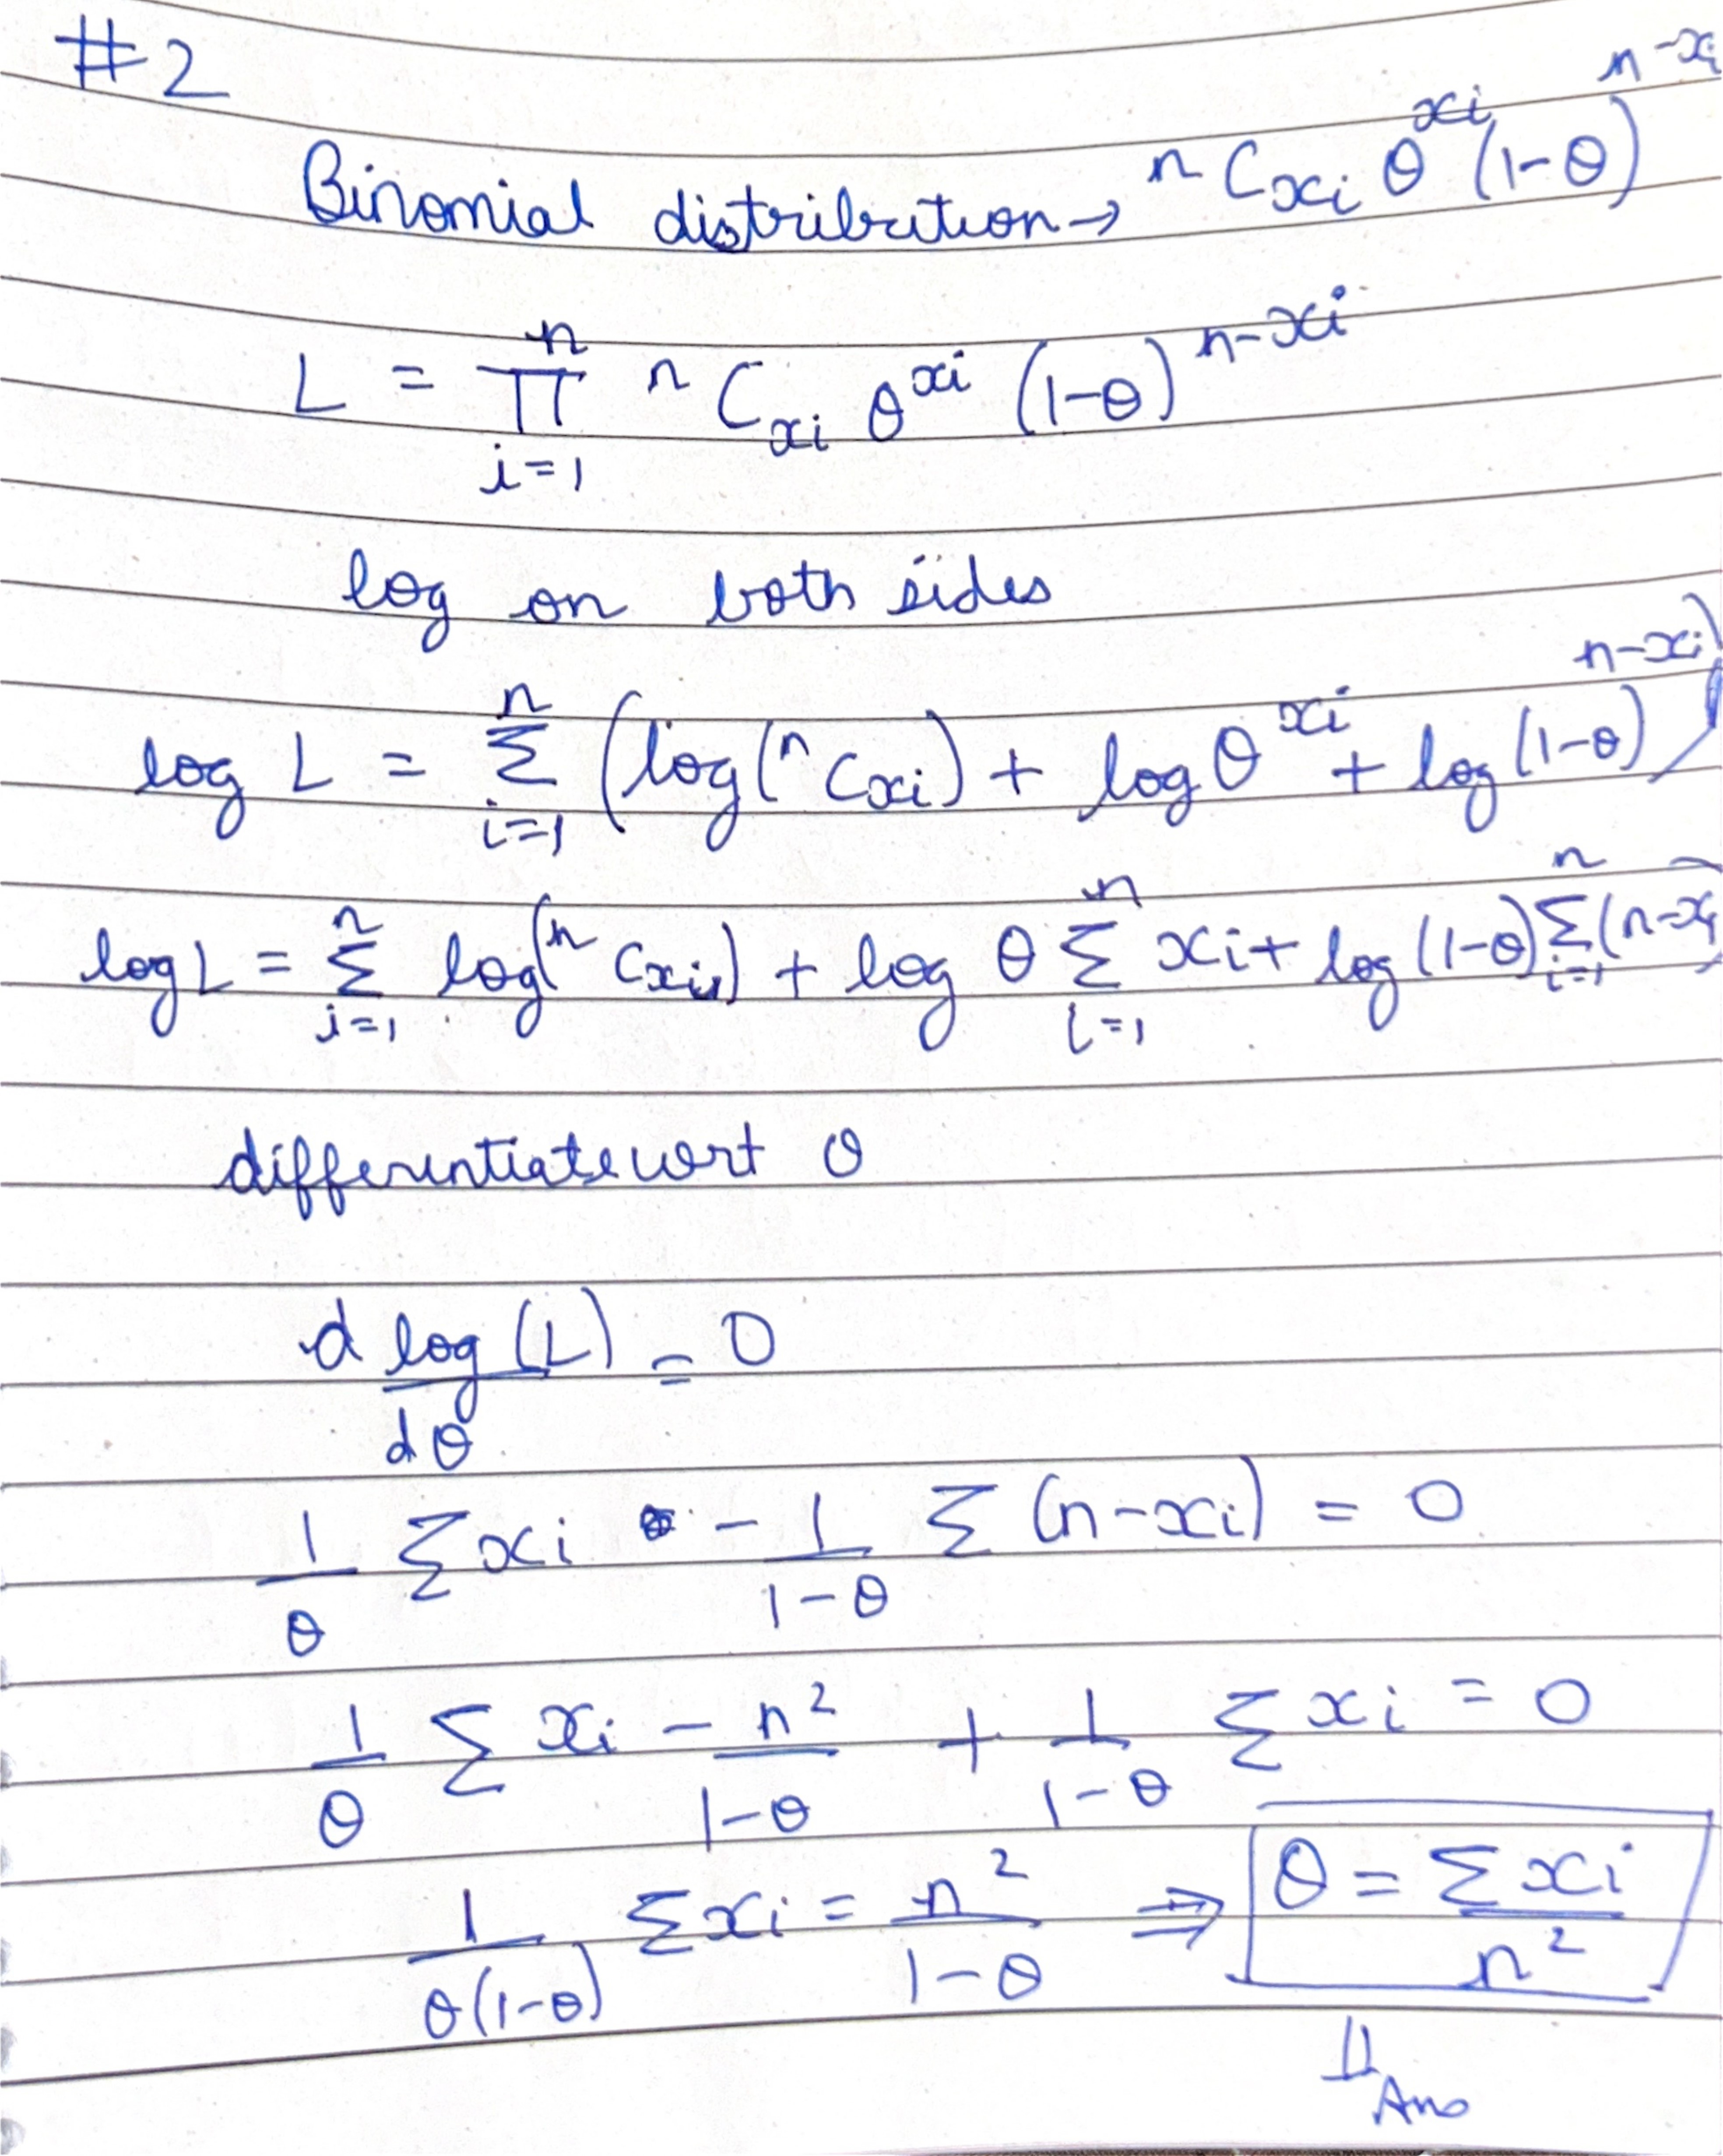 #2
Binomial distribution → ⁿC_{xi} θ^{xi} (1-θ)^{n-xi}
L = ∏_{i=1}^{n} ⁿC_{xi} θ^{xi} (1-θ)^{n-xi}
log on both sides
log L = Σ_{i=1}^{n} (log(ⁿC_{xi}) + log θ^{xi} + log (1-θ)^{n-xi})
log L = Σ_{i=1}^{n} log(ⁿC_{xi}) + log θ Σ_{i=1}^{n} xi + log (1-θ) Σ_{i=1}^{n} (n-xi)
differentiate wrt θ
d log (L) / dθ = 0
1/θ Σ xi - 1/(1-θ) Σ (n-xi) = 0
1/θ Σ xi - n²/(1-θ) + 1/(1-θ) Σ xi = 0
1/(θ(1-θ)) Σ xi = n²/(1-θ) ⇒ θ = Σ xi / n²
Ans